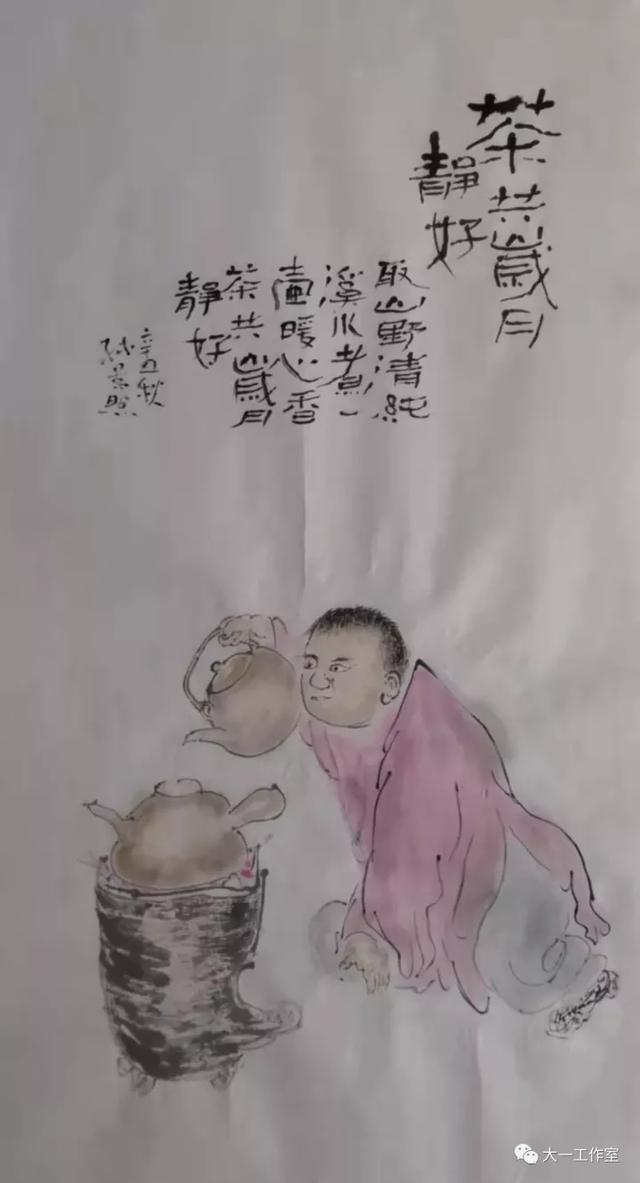 茶共歲月
靜好
取山野清純
溪水煮一
壺暖心香
茶共歲月
靜好
辛丑秋
大一工作室